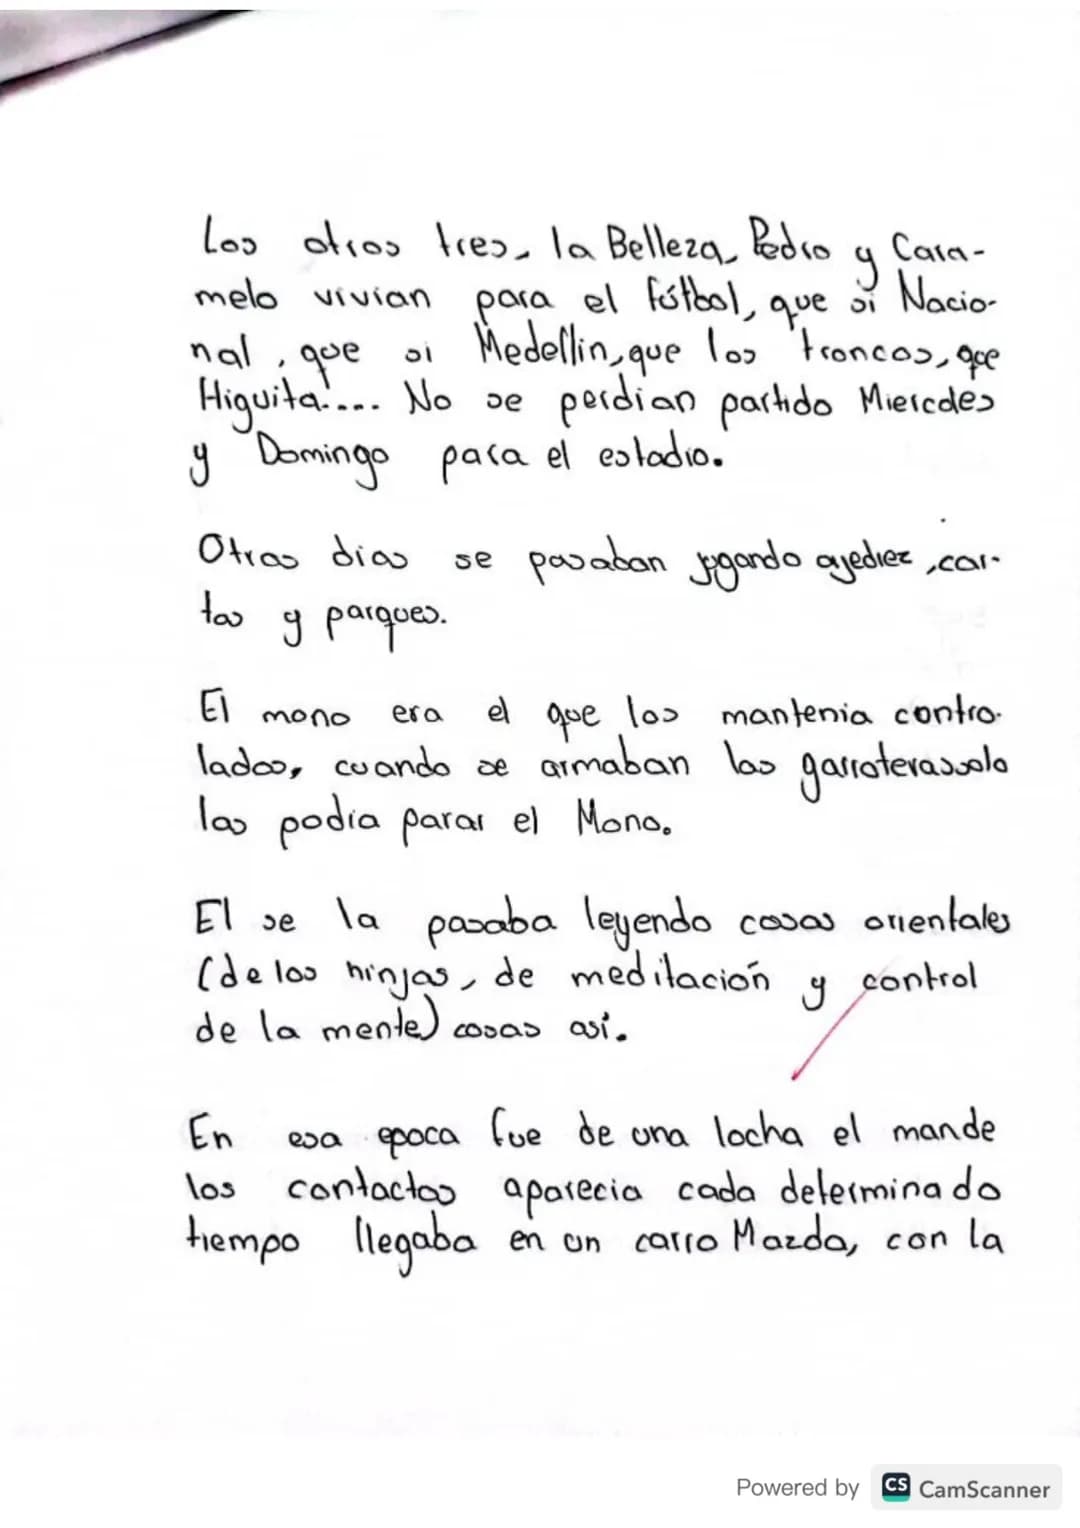 Los otros tres, la Belleza, Pedro y Cara-
melo vivian para el fútbol, que si Nacio-
nal, que si Medellin, que los troncos, que
Higuita!.... No se perdian partido Miercoles
y Domingo para el estadio.
Otros dias se pasaban jugando ajedrez, car-
tas y parques.
El mono era el que los mantenia contro-
lados, cuando se armaban las garroteras solo
las podia parar el Mono.
El se la pasaba leyendo cosas orientales
(de los ninjas, de meditación y control
de la mente) cosas así.
En esa epoca fue de una locha el mande
los contactos aparecia cada determinado
tiempo llegaba en un carro Mazda, con la
Powered by CS CamScanner